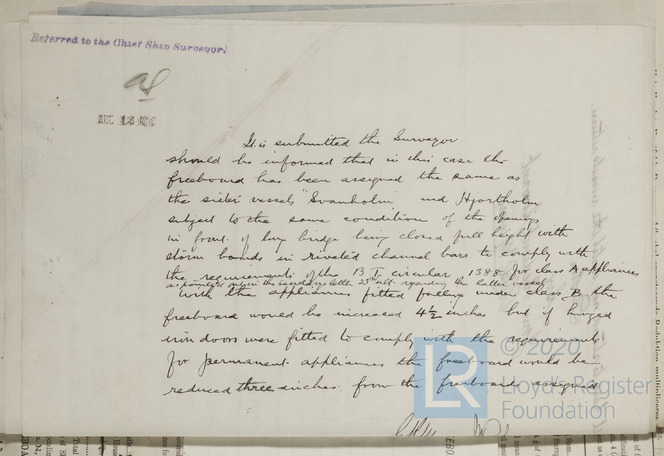 Referred to the Chief Ship Surveyor.
It is submitted the Surveyor
should be informed that in this case the
freeboard has been assigned the same as
the sister vessels "Svanholm" and Hjortholm
subject to the same condition of the openings
in front of long bridge being closed full height with
storm boards in riveted channel bars to comply with
the requirements of the 13 circular 1388 for class A appliances
as pointed out in the Secretary's letter 23rd ult. regarding the latter vessel
With the appliances fitted under class B the
freeboard would be increased 4½ inches but if hinged
iron doors were fitted to comply with the requirements
for permanent appliances the freeboard would be
reduced three inches from the freeboard assigned
LR
© 2020
Lloyd's Register
Foundation